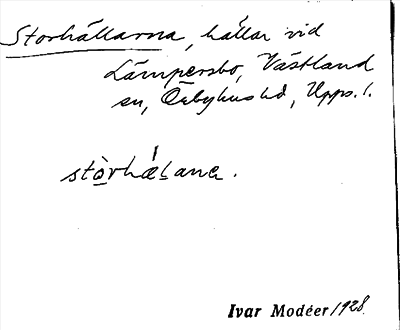 Storhällarna, hällar vid
Lämpersbo, Västland
sn, Örbyhus hd, Upps. l.
stòrhæ̀ḷana.
Ivar Modéer/1928.